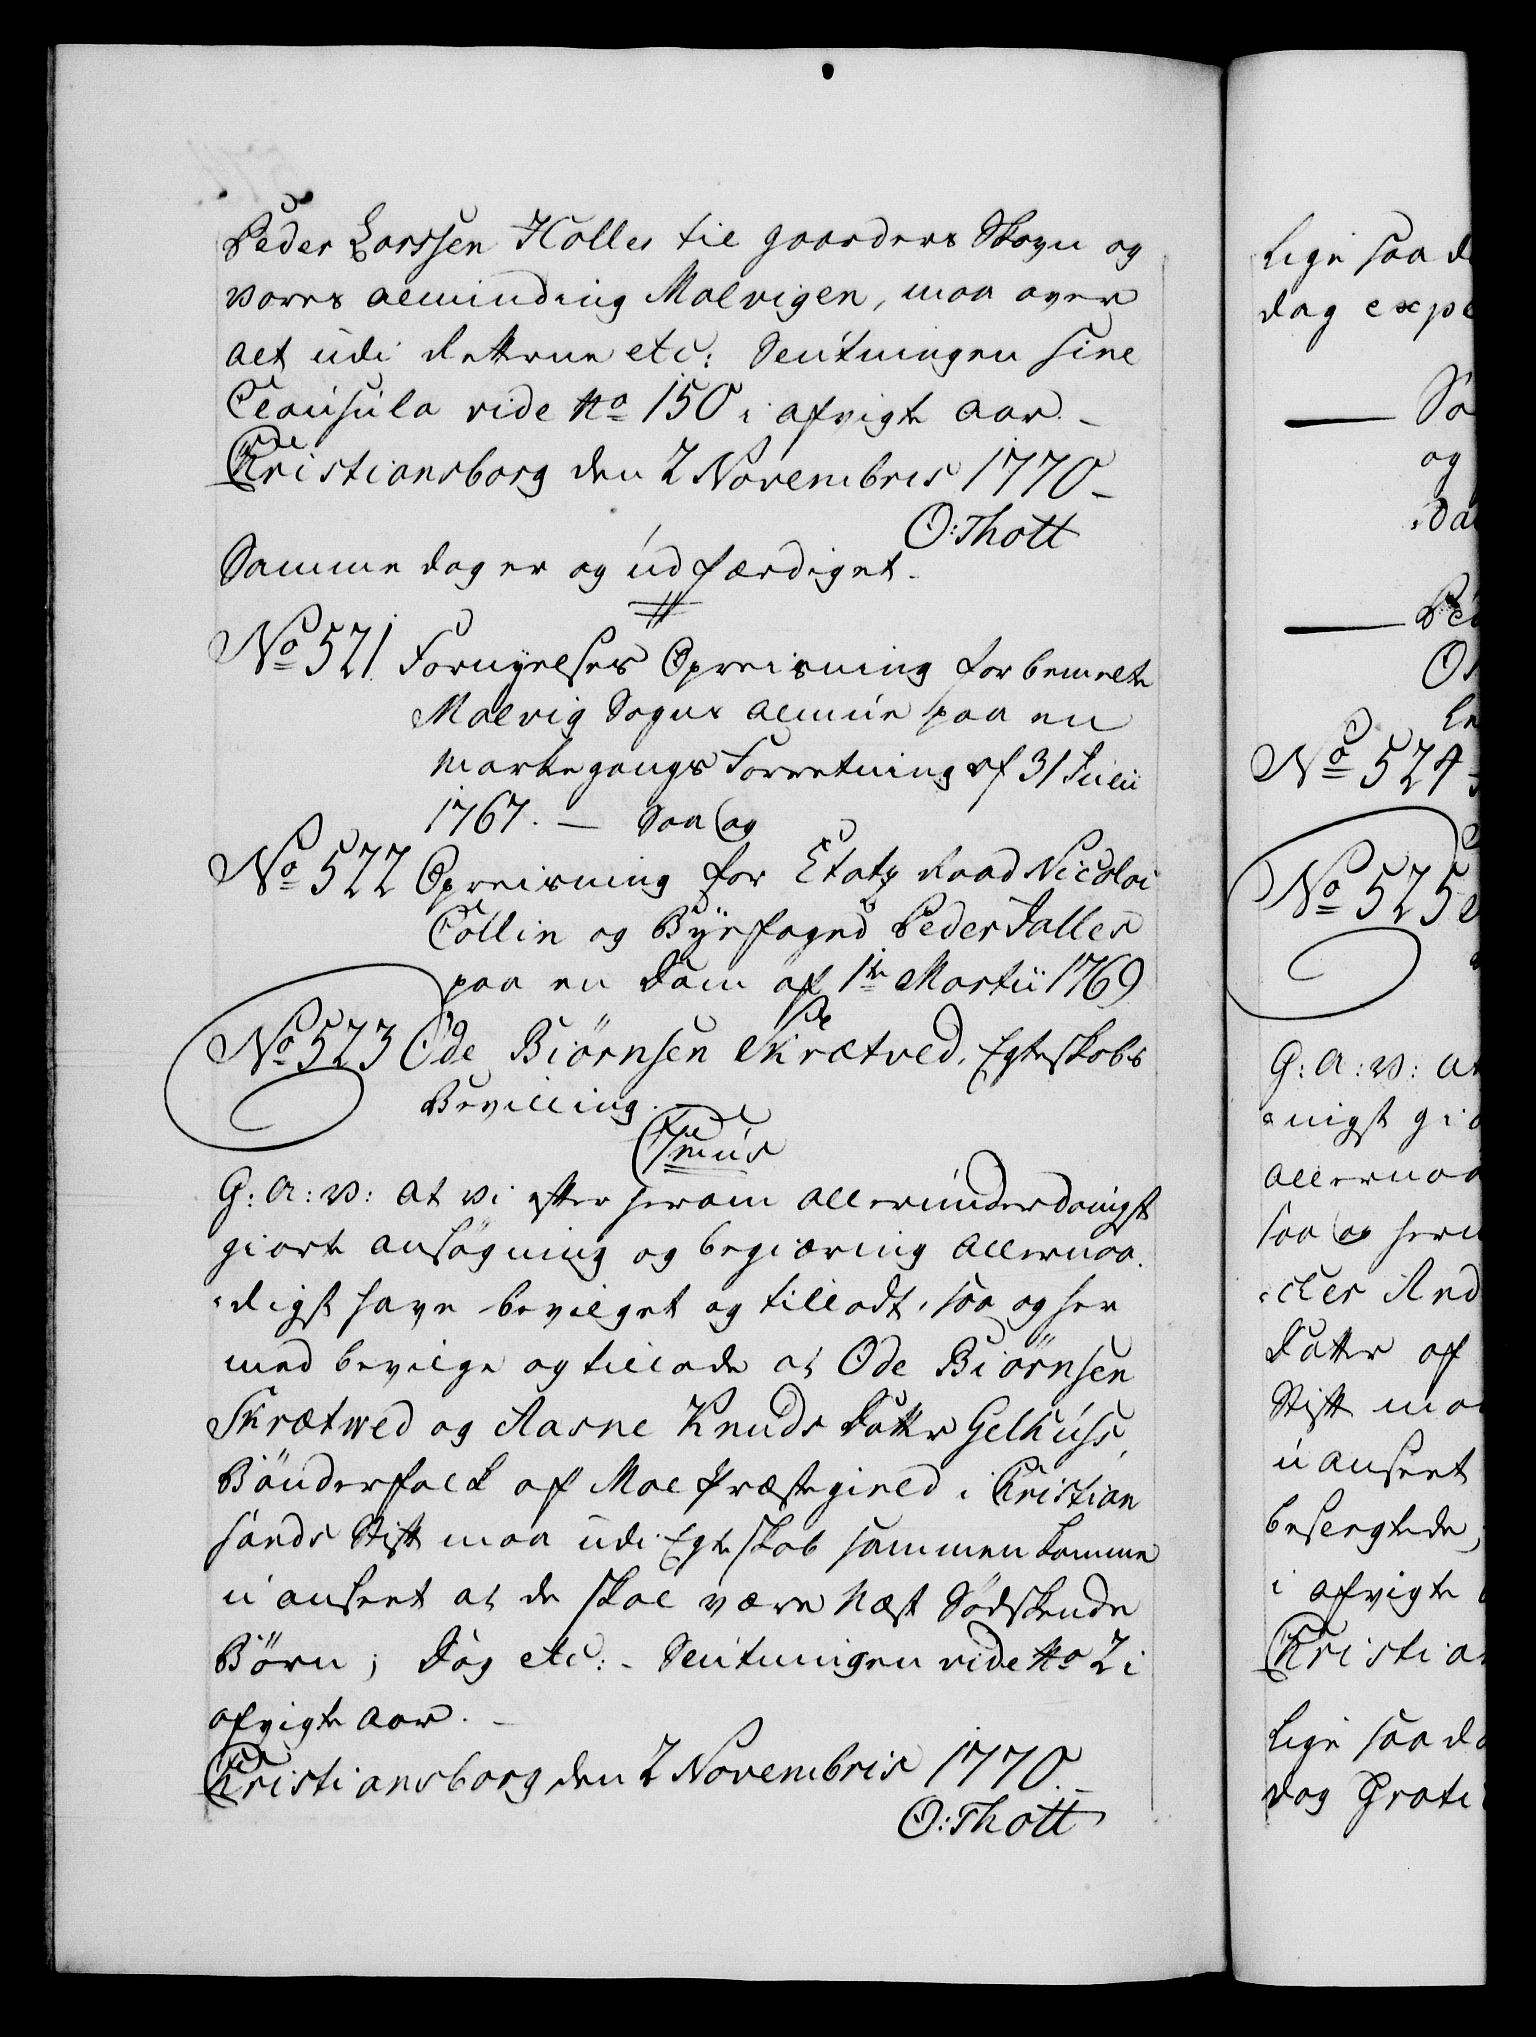 Peder Larssen Halles til gaarders Skovn og
vores alminding Malvigen, maa over
alt udi dettene etc: Slutningen sine
Clausula vide No 150 i afvigte aar. -
Christiansborg den 2 Novembris 1770 -
O: Thott
Samme dag er og udfærdiget.
No 521 Fornyelses Opreisning for bemelte
Malvig Sogns almue paa en
Markegangs Forretning af 31 Julii
1767. — Saa og
No 522 Opreisning for Etatz Raad Nicolai
Collin og Byefoged Peder Saller
paa en Dom af 1te Martii 1769
No 523 Ode Biörnsen Skrætved, Egteskabs
Bevilling.
Cmus
G: A: V: at vi efter herom allerunderdanigst
giorte ansögning og begiæring allernaa-
digst have bevilget og tilladt, saa og her
med bevilge og tillade at Ode Biörnsen
Skrætwed og Aasne Knuds Datter Gelhuss,
Bönderfolck af Moe Præstegield i Christian
sands Stift maa udi Egteskab sammen komme
uanseet at de skal være Næst Södskende
Börn; Dog etc: - Slutningen vide No 2 i
afvigte aar. -
Christiansborg den 2 Novembris 1770. -
O: Thott
lige saa d
dag expe
Sö
og
No 524
No 525
G: A: V: at
nigst gio
allernaa
saa og herm
And
Datter af
Stift maa
uanseet
besvogrede;
i afvigte
Christia
lige saa da
dag Grati